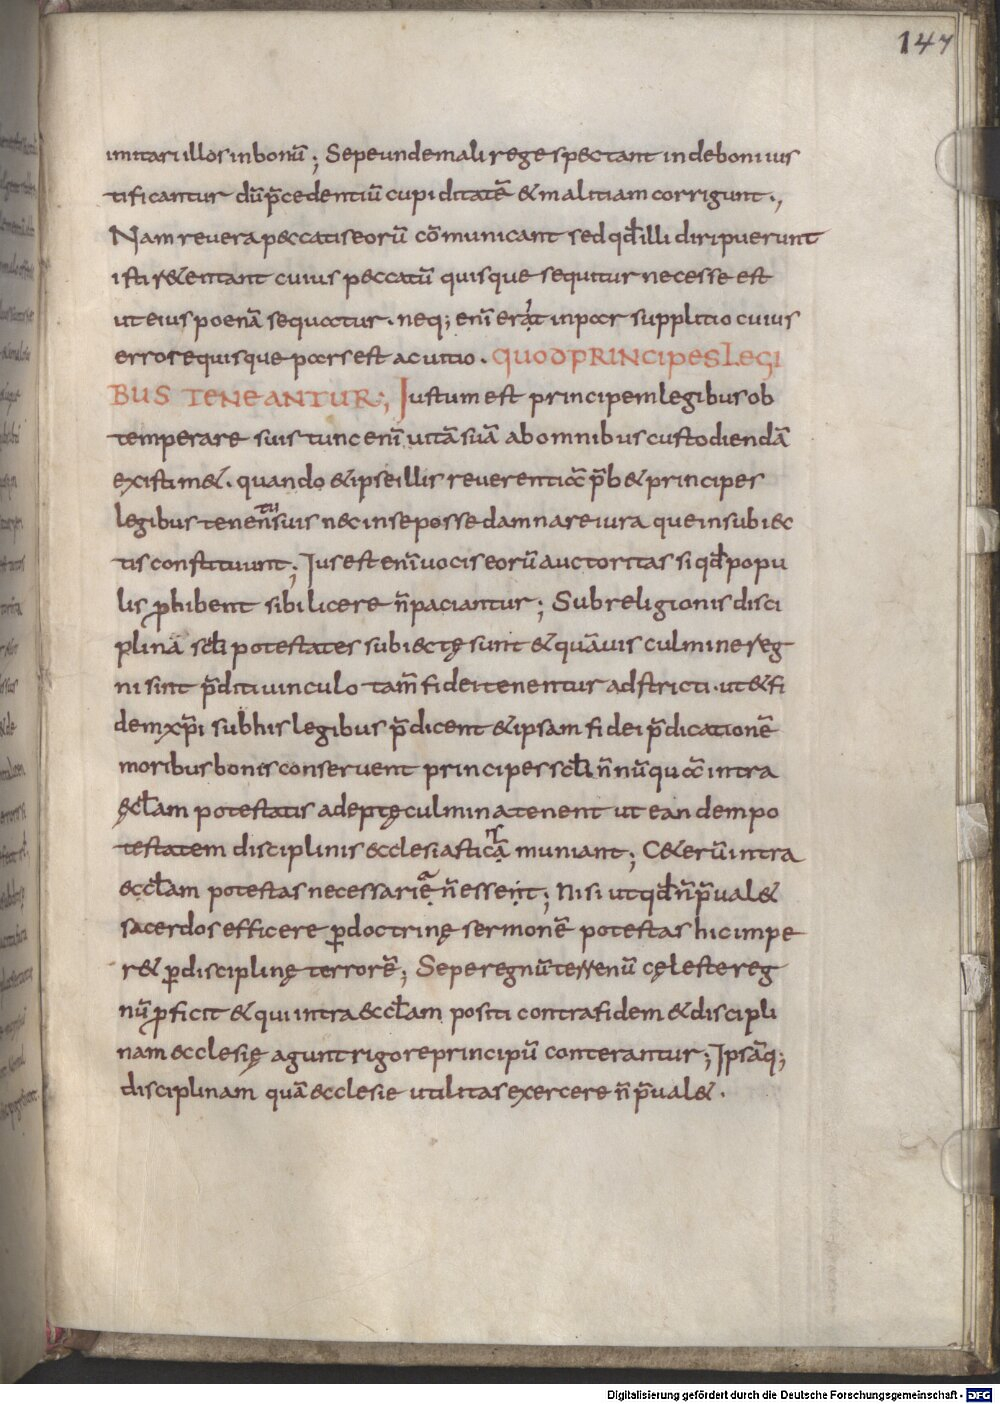 147
imitari illos in bonũ; Sepe unde mali rege spectant inde boni ius
tificantur dũ p̃cedentiũ cupiditatẽ & malitiam corrigunt.,
Nam revera peccatis eorũ cõmunicant sed qđ illi diripuerunt
isti r&entant cuius peccatũ quisque sequitur necesse est
ut eius poenã sequatur. neq; enĩ erat inpar supplitio cuius
errore quisque par est ac uitio. QUOD PRINCIPES LEGI
BUS TENEANTUR; Justum est principem legibus ob
temperare suis tunc enĩ uitã suã ab omnibus custodiendã
existim&. quando & ipse illis reverentiã p̃b& principes
legibus teneñ suis nec in se posse damnare iura que in subiec
tis constituunt; Jus est enĩ uocis eorũ auctoritas si qđ popu
lis ꝓhibent sibi licere ñ paciantur; Sub religionis disci
plinã sc̄li potestates subiectę sunt & quãuis culmine reg
ni sint p̃diti uinculo tam̃ fidei tenentur adstricti. ut & fi
dem xp̃i subhis legibus p̃dicent & ipsam fidei p̃dicationẽ
moribus bonis conseruent principes sc̄li ñnũquã intra
ęccl̄am potestatis adeptę culmina tenent ut eandem po
testatem disciplinis ecclesiasticã muniant; C&erũ intra
eccl̄am potestas necessarię ñ essent; Nisi ut qđ ñ p̃ual&
sacerdos efficere ꝑ doctrinę sermonẽ potestas hic impe
r& ꝑ disciplinę terrorẽ; Sepe regnũ terrenũ cęleste reg
nũ ꝓficit & qui intra eccl̄am positi contra fidem & discipli
nam ecclesię agunt rigore principũ conterantur; Ipsãq;
disciplinam quã ecclesie utilitas exercere ñ p̃ual&.
Digitalisierung gefördert durch die Deutsche Forschungsgemeinschaft - DFG